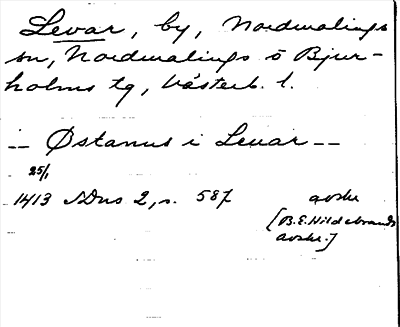 Levar, by, Nordmalings
sn, Nordmalings o Bjur-
holms tg, Västerb. l.
-- Østanus i Levar --
25/1
1413 SDns 2, s. 587 avskr
[B.E. Hildebrands
avskr.]